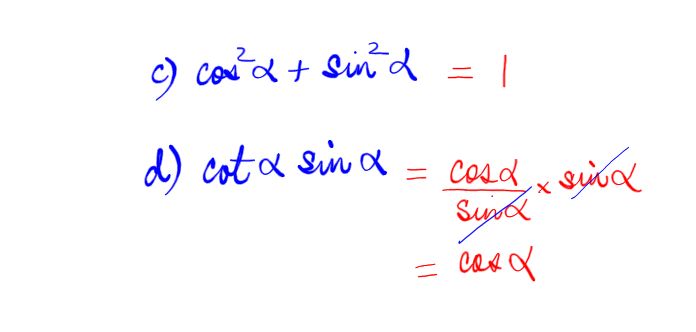 c) cos²α + sin²α = 1
d) cot α sin α = cosα/sinα × sinα
= cosα